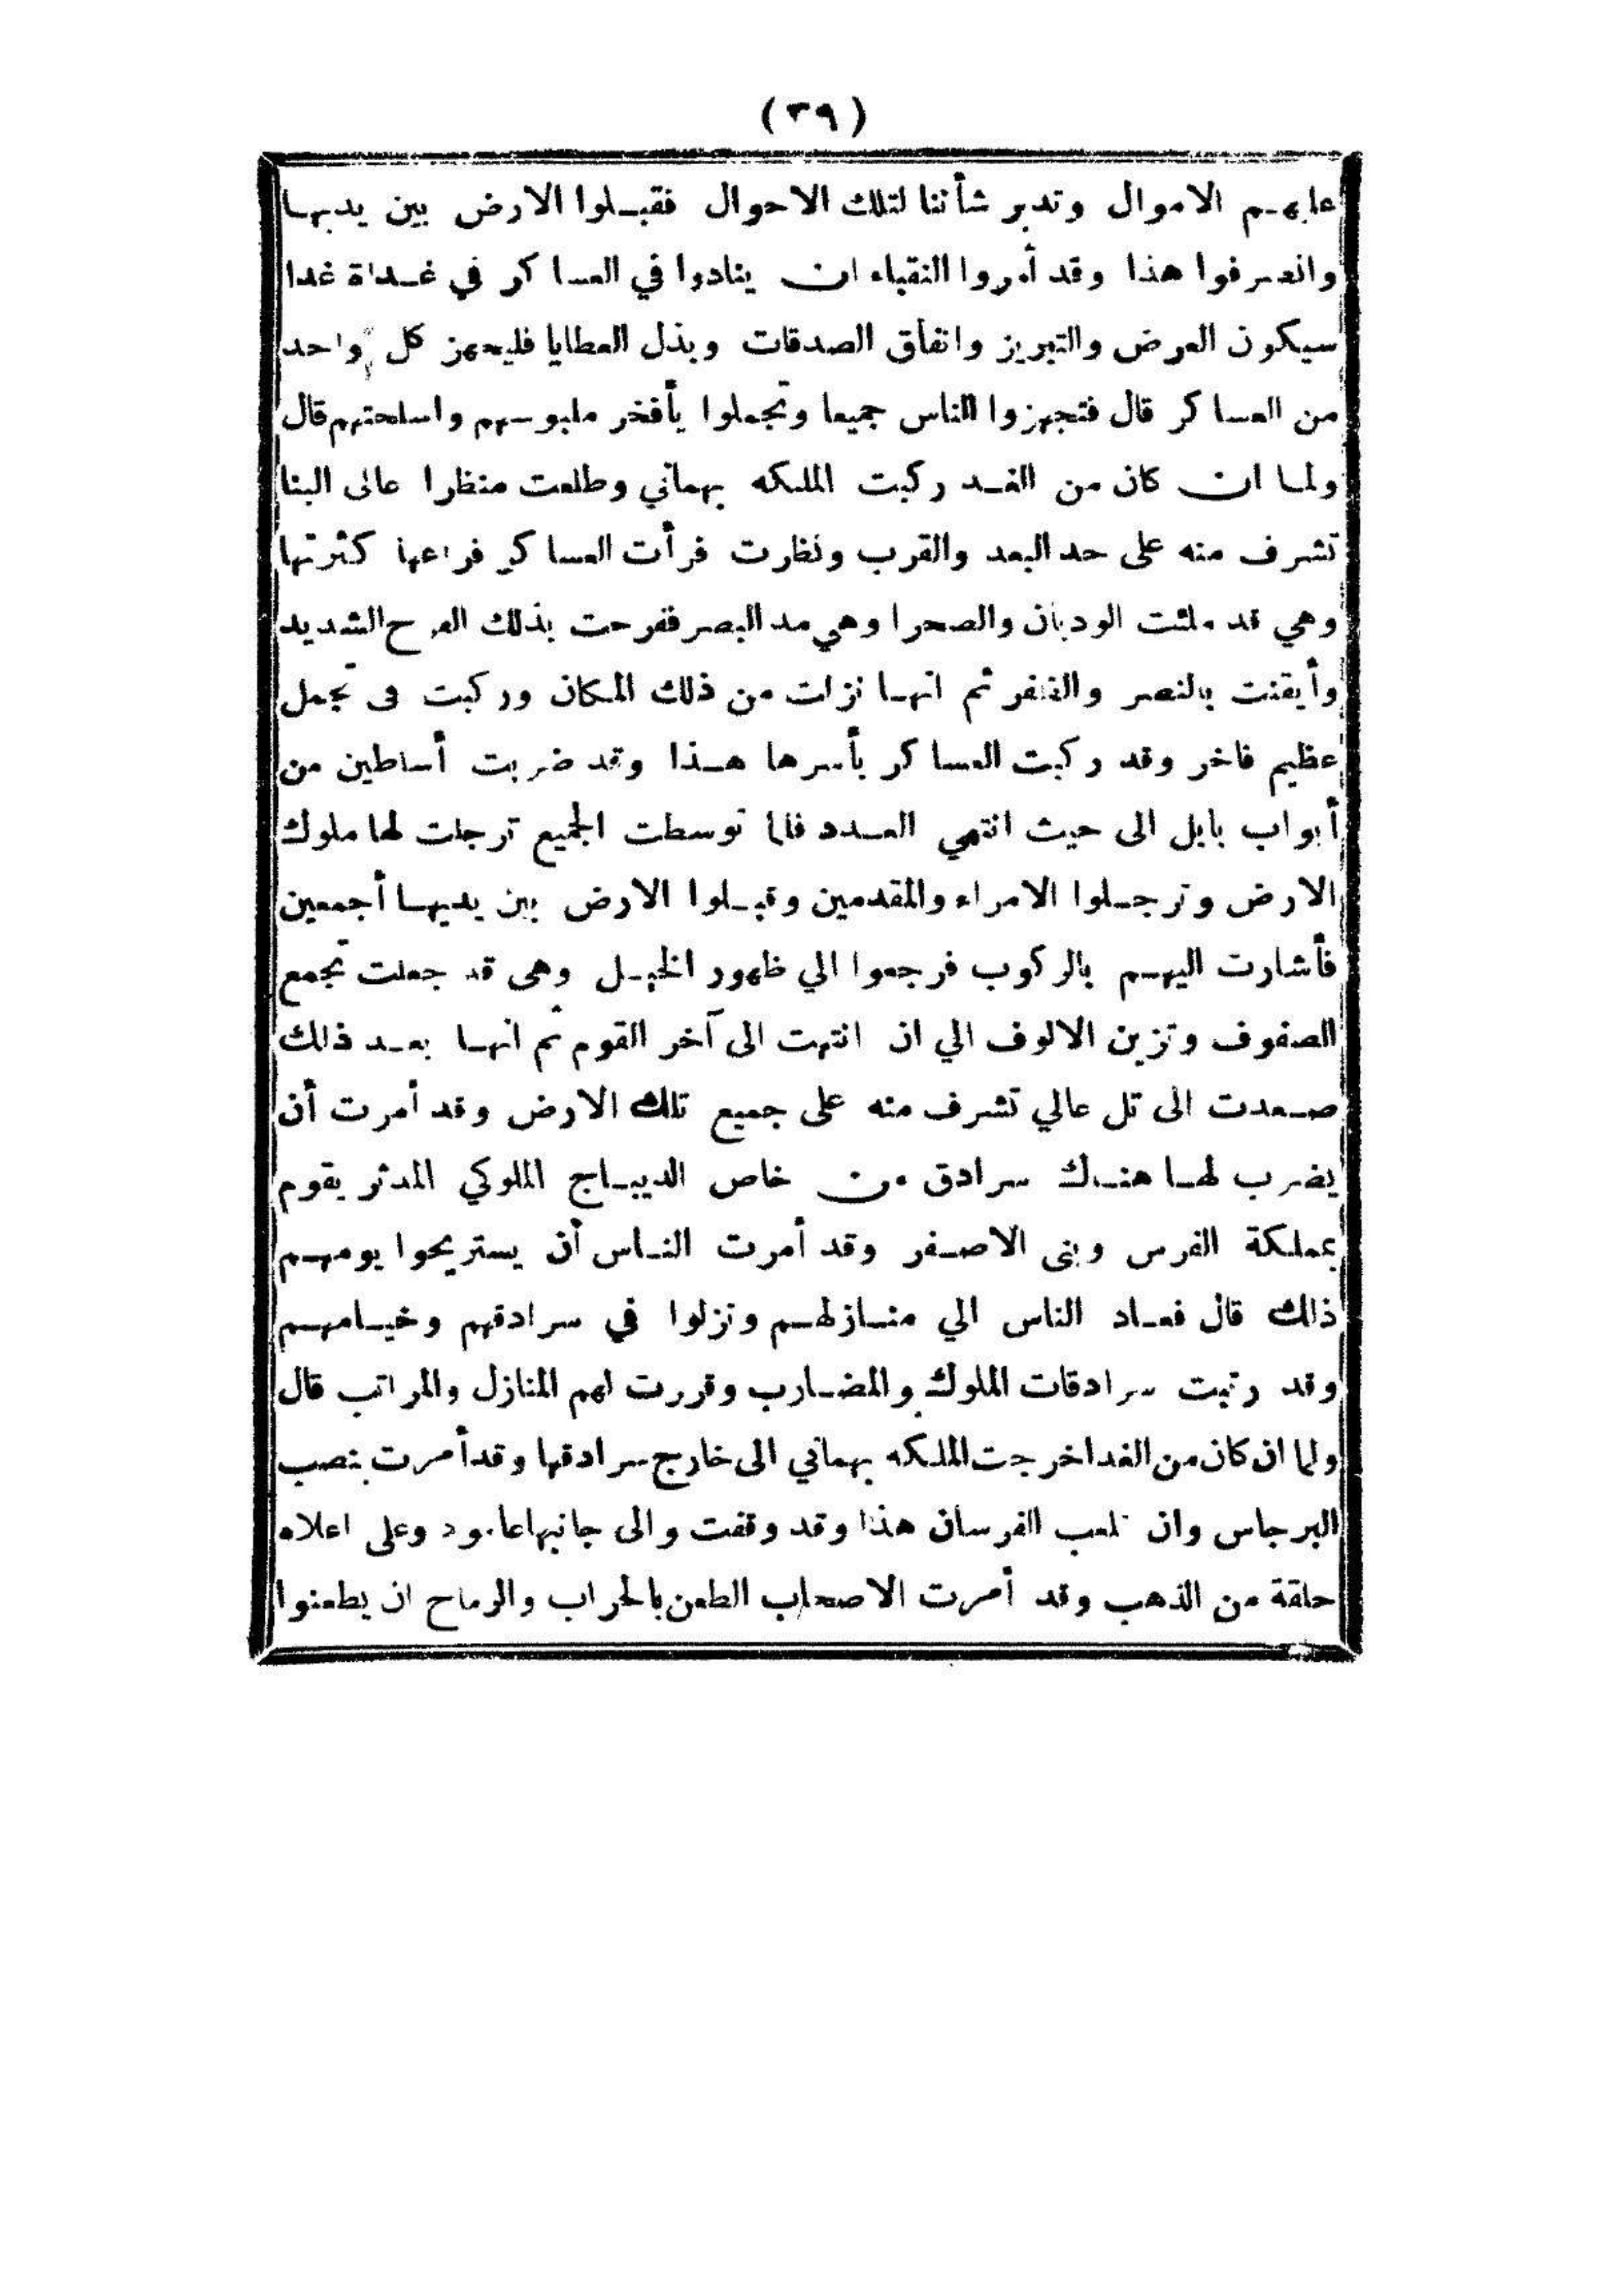 (٣٩)
عليهم الاموال وتدبر شأننا لتلك الاحوال فقبلوا الارض بين يديها
وانصرفوا هذا وقد أمروا النقباء ان ينادوا في العساكر في غداة غدا
سيكون العرض والتبريز وانفاق الصدقات وبذل العطايا فليجهز كل واحد
من العساكر قال فتجهزوا الناس جميعا وتجملوا بأفخر ملبوسهم واسلحتهم قال
ولما ان كان من الغد ركبت الملكه بهماني وطلعت منظرا عالى البنا
تشرف منه على حد البعد والقرب ونظرت فرأت العساكر فراعها كثرتها
وهي قد ملئت الوديان والصحرا وهي مد البصر ففرحت بذلك الفرح الشديد
وأيقنت بالنصر والظفر ثم انها نزلت من ذلك المكان وركبت فى تجمل
عظيم فاخر وقد ركبت العساكر بأسرها هذا وقد ضربت أساطين من
أبواب بابل الى حيث انتهي العدد فلما توسطت الجميع ترجلت لها ملوك
الارض وترجلوا الامراء والمقدمين وقبلوا الارض بين يديها أجمعين
فأشارت اليهم بالركوب فرجعوا الي ظهور الخيل وهى قد جعلت تجمع
الصفوف وتزين الالوف الي ان انتهت الى آخر القوم ثم انها بعد ذلك
صعدت الى تل عالي تشرف منه على جميع تلك الارض وقد أمرت أن
يضرب لها هناك سرادق من خاص الديباج الملوكي المدثر يقوم
بمملكة الفرس وبنى الاصفر وقد أمرت الناس أن يستريحوا يومهم
ذلك قال فعاد الناس الي منازلهم ونزلوا في سرادقهم وخيامهم
وقد رتبت سرادقات الملوك والمضارب وقررت لهم المنازل والمراتب قال
ولما ان كان من الغد اخرجت الملكه بهماني الى خارج سرادقها وقد أمرت بنصب
البرجاس وان تلعب الفرسان هذا وقد وقفت والى جانبها عامود وعلى اعلاه
حلقة من الذهب وقد أمرت الاصحاب الطعن بالحراب والرماح ان يطعنوا